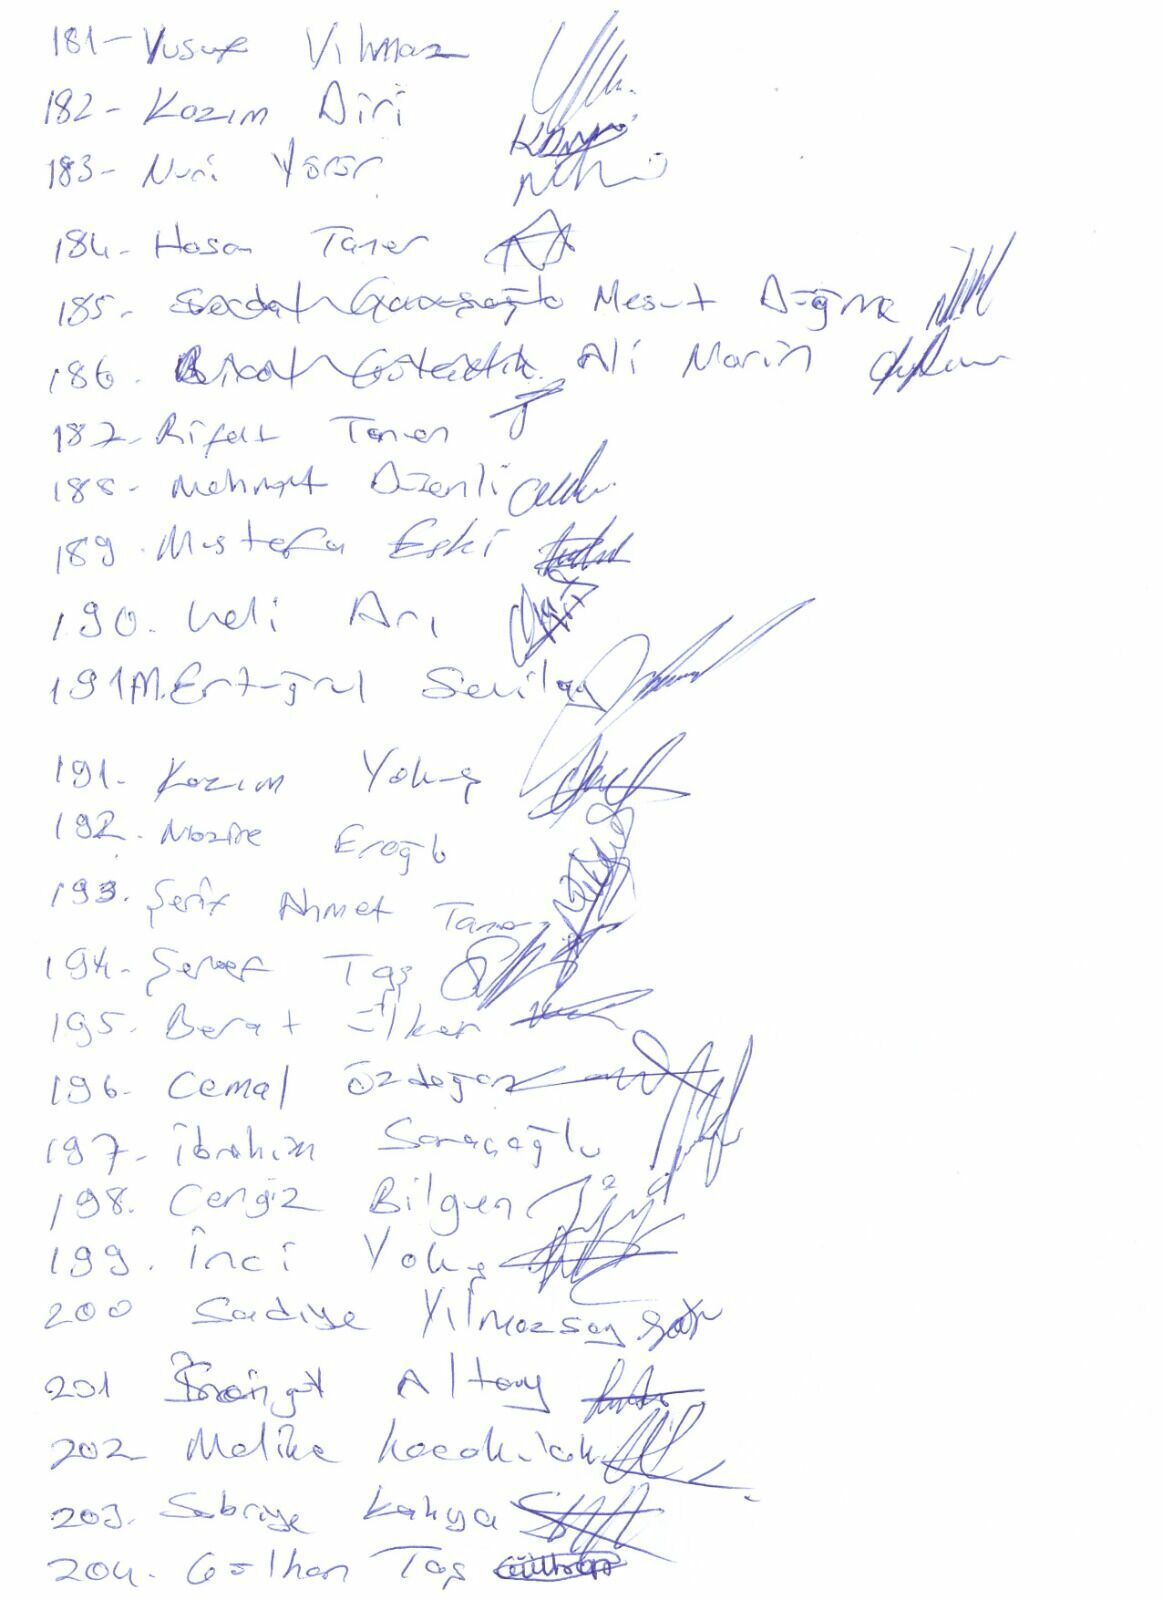 181- Yusuf Yılmaz
182- Kazım Diri
183- Nuri
184- Hasan Taner
185- Mesut Düğme
186. Ali Narin
187- Rifat Taner
188- Mehmet Düzenli
189. Mustafa Eski
190. Veli Arı
191 M. Ertuğrul Sevilay
191- Kazım Yokuş
192- Nazire Eroğlu
193. Şerif Ahmet Taner
194- Şeref Taş
195. Berat İlker
196- Cemal Özdoğan
197- İbrahim Saraçoğlu
198. Cengiz Bilgen
199. İnci Yokuş
200 Sadiye Yılmazsoy
201 Altay
202 Melike Kocakulak
203. Sabriye Kahya
204. Gülhan Taş